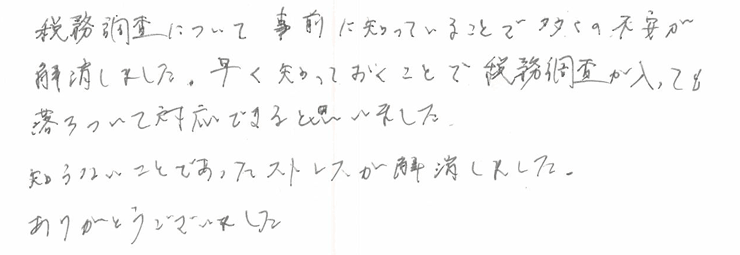 税務調査について事前に知っていることで多くの不安が
解消しました。早く知っておくことで税務調査が入っても
落ちついて対応できると思いました
知らないことであったストレスが解消しました。
ありがとうございました